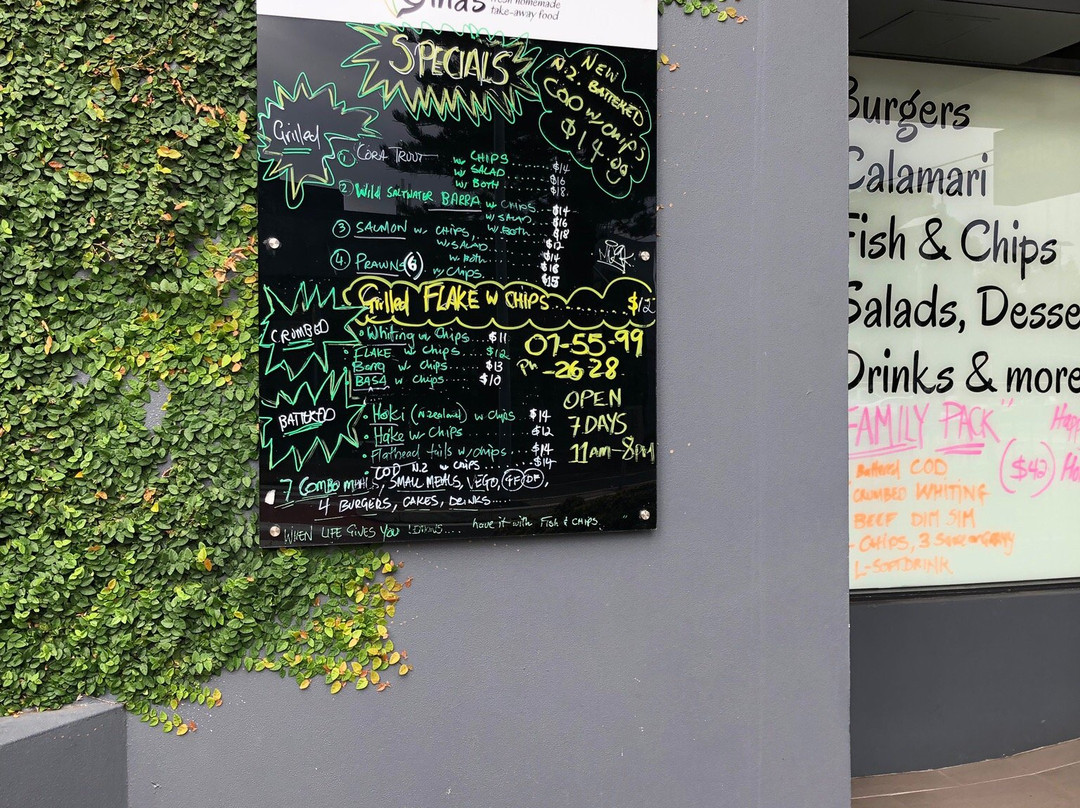 fresh homemade
take-away food
SPECIALS
NEW
N.Z. BATTERED
COD w chips
$14.00
Grilled
① CORA TROUT w CHIPS ....... $14
w SALAD ....... $16
w BOTH ....... $18
② Wild SALTWATER BARRA w CHIPS... $14
w SALAD... $16
w Both... $18
③ SALMON w CHIPS, $12
w SALAD $14
w Both $16
④ PRAWNS (6) w chips $15
Grilled FLAKE w CHIPS........ $12
CRUMBED
• Whiting w Chips... $11
• FLAKE w Chips..... $12
Barra w chips..... $13
BASA w Chips..... $10
07-55-99
Ph -2628
OPEN
7 DAYS
11AM-8PM
BATTERED
• Hoki (N Zealand) w Chips $14
• Hake w Chips ....... $12
• Flathead tails w/chips ...... $14
COD N.Z w chips ...... $14
7 Combo meals, SMALL MEALS, VEGO, GF, DF,
4 BURGERS, CAKES, DRINKS....
"WHEN LIFE GIVES YOU LEMONS.... have it with FISH & CHIPS. "
Burgers
Calamari
Fish & Chips
Salads, Desse
Drinks & more
FAMILY PACK"
($42)
Battered COD
CRUMBED WHITING
BEEF DIM SIM
- CHIPS, 3 Sauce or Gravy
L-SOFTDRINK